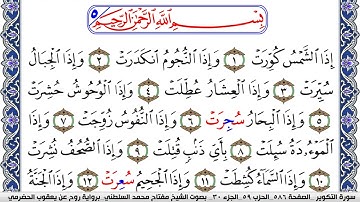 بِسْمِ ٱللَّهِ ٱلرَّحْمَٰنِ ٱلرَّحِيمِ ٥
إِذَا ٱلشَّمْسُ كُوِّرَتْ ١ وَإِذَا ٱلنُّجُومُ ٱنكَدَرَتْ ٢ وَإِذَا ٱلْجِبَالُ
سُيِّرَتْ ٣ وَإِذَا ٱلْعِشَارُ عُطِّلَتْ ٤ وَإِذَا ٱلْوُحُوشُ حُشِرَتْ
٥ وَإِذَا ٱلْبِحَارُ سُجِرَتْ ٦ وَإِذَا ٱلنُّفُوسُ زُوِّجَتْ ٧ وَإِذَا
ٱلْمَوْءُۥدَةُ سُئِلَتْ ٨ بِأَيِّ ذَنۢبٍ قُتِلَتْ ٩ وَإِذَا ٱلصُّحُفُ نُشِرَتْ
١٠ وَإِذَا ٱلسَّمَآءُ كُشِطَتْ ١١ وَإِذَا ٱلْجَحِيمُ سُعِرَتْ ١٢ وَإِذَا ٱلْجَنَّةُ
سورة التكوير . الصفحة ٥٨٦ . الحزب ٥٩ . الجزء ٣٠ . بصوت الشيخ مفتاح محمد السلطني . برواية روح عن يعقوب الحضرمي